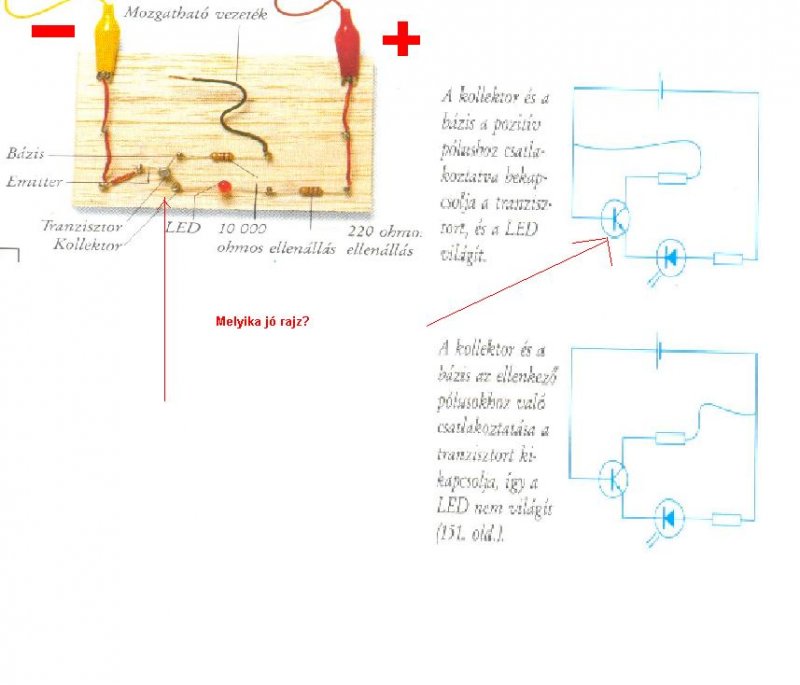 Mozgatható vezeték
Bázis
Emitter
Tranzisztor
Kollektor
LED
10 000
ohmos ellenállás
220 ohmo.
ellenállás
Melyika jó rajz?
A kollektor és a
bázis a pozitív
pólushoz csatla-
koztatva bekap-
csolja a tranzisz-
tort, és a LED
világít.
A kollektor és a
bázis az ellenkező
pólusokhoz való
csatlakoztatása a
tranzisztort ki-
kapcsolja, így a
LED nem világít
(151. old.).